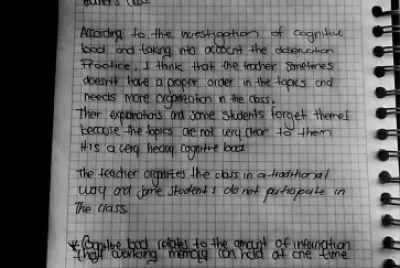 Class.
According to the investigation of cognitive
load and taking into account the observation
Practice, I think that the teacher sometimes
doesn't have a proper order in the topics and
needs more organization in the class.
Ther explanations and some students forget themes
because the topics are not very clear to them
It is a very heavy cognitive load
The teacher organizes the class in a traditional
way and some students do not participate in
the class.
*Cognitive load relates to the amount of information
that working memory can hold at one time